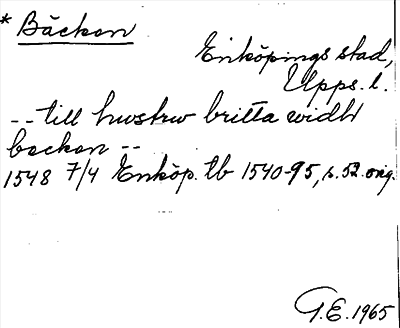 * Bäcken
Enköpings stad,
Upps. l.
-- till hwstrw britta widh
becken --
1548 7/4 Enköp. tb 1540-95, s. 52. orig.
G.E. 1965